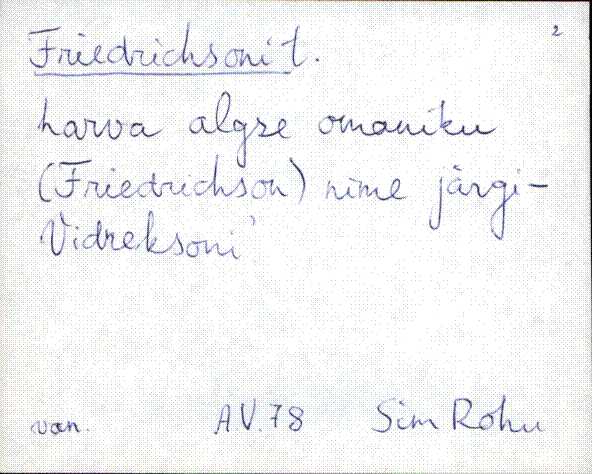 2
Friedrichsoni t.
harva algse omaniku
(Friedrichson) nime järgi -
Vidreksoni
van. AV.78 Sim Rohu